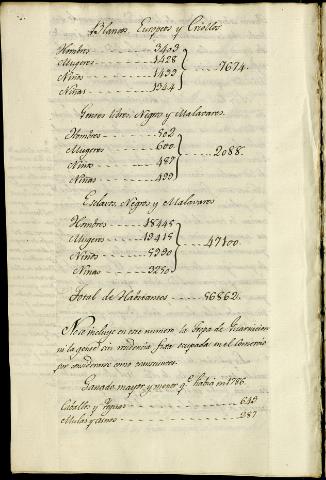 Blancos, Europeos y Criollos
Hombres 3409
Mugeres 1428
Niños 1493 7674.
Niñas 1344
Gentes libres, Negros y Malavares.
Hombres 502
Mugeres 600
Niños 487 2088.
Niñas 499
Esclavos, Negros y Malavares
Hombres 18445
Mugeres 19415
Niños 5990 47100.
Niñas 3250
Total de Habitantes 56862.
No se incluye en este numero la Tropa de Guarnicion
ni la gente sin residencia fixa ocupada en el Comercio
por considerarse como transeuntes.
Ganado mayor y menor q.e habia en 1786.
Caballos y Yeguas 649
Mulas y Asnos